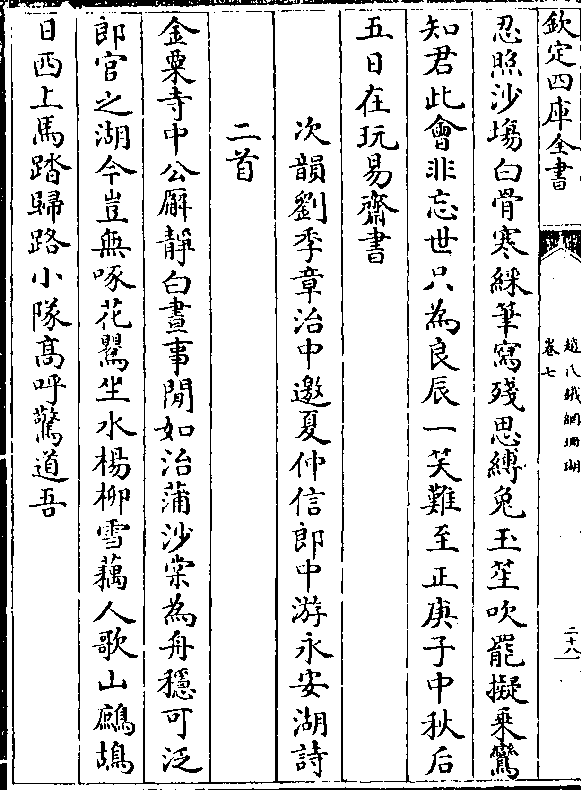 欽定四庫全書
趙氏鐵網珊瑚
卷七
二十八
忍照沙塲白骨寒綵筆寫殘思縛兔玉笙吹罷擬乗鸞
知君此會非忘世只為良辰一笑難至正庚子中秋后
五日在玩易齋書
次韻劉季章治中邀夏仲信郎中游永安湖詩
二首
金粟寺中公廨靜白晝事閒如治蒲沙棠為舟穩可泛
郎官之湖今豈無啄花鸎坐水楊栁雪藕人歌山鷓鴣
日西上馬踏歸路小隊髙呼驚道吾